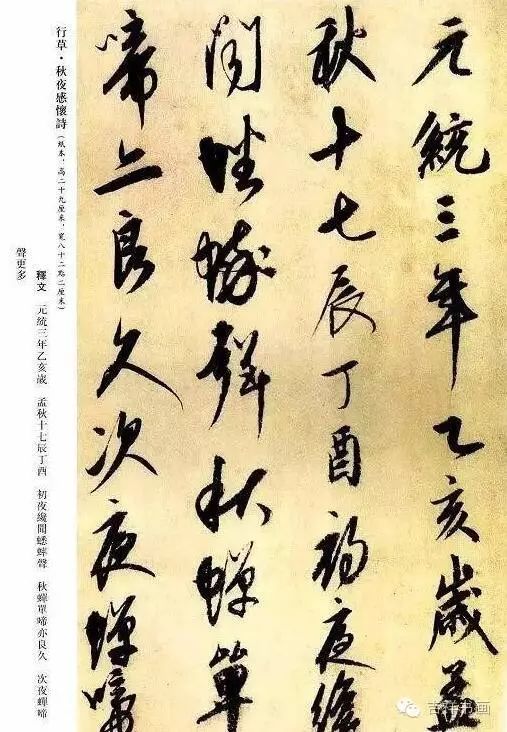 元統三年乙亥歲孟
秋十七辰丁酉初夜纔
聞蟋蟀聲秋蟬單
啼亦良久次夜蟬啼
行草·秋夜感懷詩（紙本，高二十九厘米，寬八十二點二厘米）
釋文 元統三年乙亥歲 孟秋十七辰丁酉 初夜纔聞蟋蟀聲 秋蟬單啼亦良久 次夜蟬啼
聲更多
吉祥书画